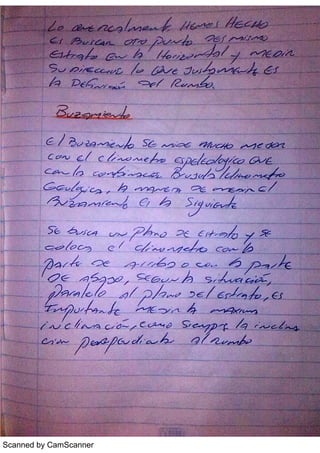 Lo que realmente Hemos Hecho
es Buscar otro punto del mismo
Estrato en la Horizontal y medir
su direccion lo que Justamente es
la Definición del Rumbo.
Buzamiento
El Buzamiento se mide mucho mejor
con el clinometro espeleologico que
con la combinacion Brujula/clinometro
Geologica, la manera de medir el
Buzamiento es la Siguiente
Se busca un plano de estrato y se
coloca el clinometro con la
parte de arriba o con la parte
de abajo, segun la situación,
paralelo al plano del estrato, es
Importante medir la maxima
inclinación, como siempre la inclina
cion perpendicular al Rumbo
Scanned by CamScanner